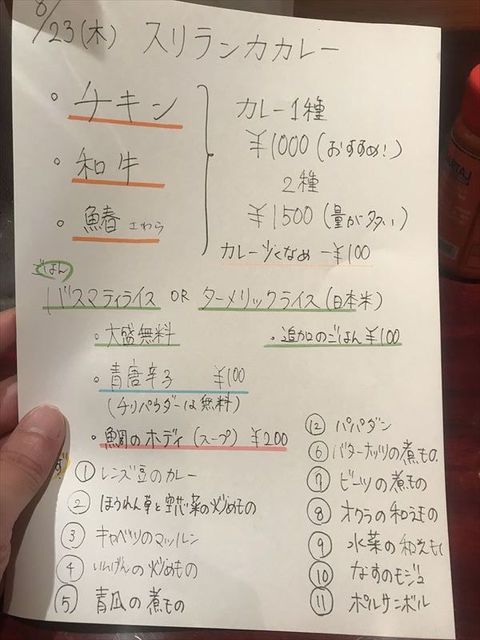 8/23(木) スリランカカレー
。チキン
。和牛
。鰆 さわら
カレー1種
¥1000(おすすめ!)
2種
¥1500(量が多い)
カレー少くなめ -¥100
ごはん
バスマティライス OR ターメリックライス(日本米)
・大盛無料
・追加のごはん¥100
・青唐辛子 ¥100
(チリパウダーは無料)
・鯛のホディ(スープ) ¥200
① レンズ豆のカレー
② ほうれん草と空芯菜の炒めもの
③ キャベツのマッルン
④ いんげんの炒めもの
⑤ 青瓜の煮もの
⑫ パパダン
⑥ バターナッツの煮もの
⑦ ビーツの煮もの
⑧ オクラの和えもの
⑨ 水菜の和えもの
⑩ なすのモジュ
⑪ ポルサンボル